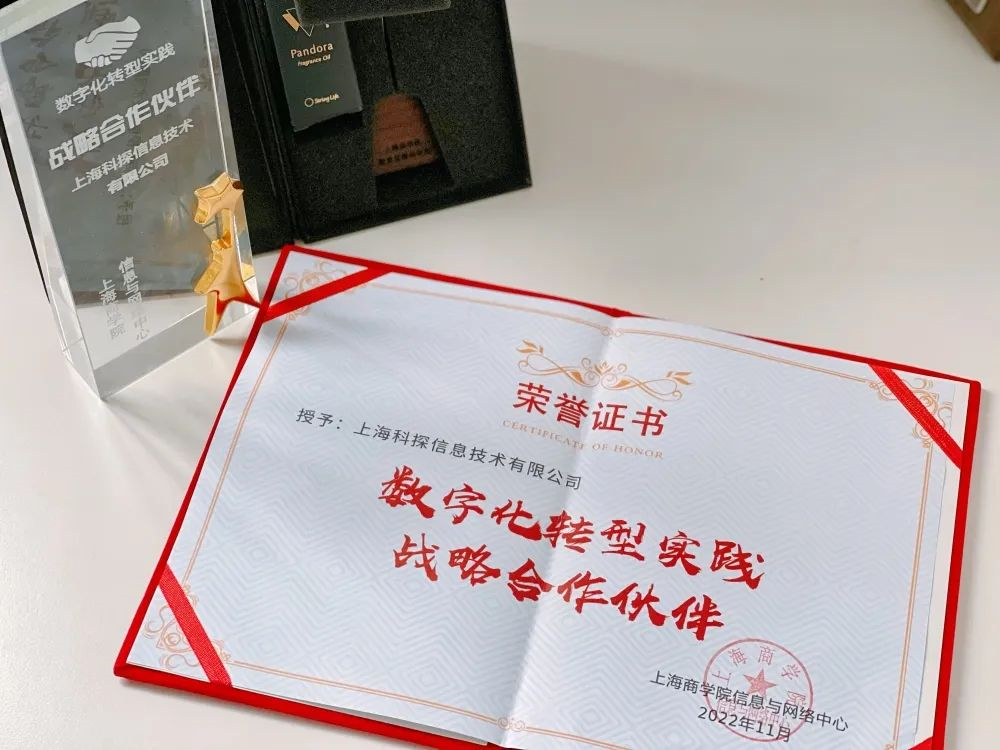 数字化转型实践
战略合作伙伴
上海科探信息技术
有限公司
上海商学院
信息与网络中心
Pandora
Fragrance Oil
荣誉证书
CERTIFICATE OF HONOR
授予：上海科探信息技术有限公司
数字化转型实践
战略合作伙伴
上海商学院
上海商学院信息与网络中心
2022年11月